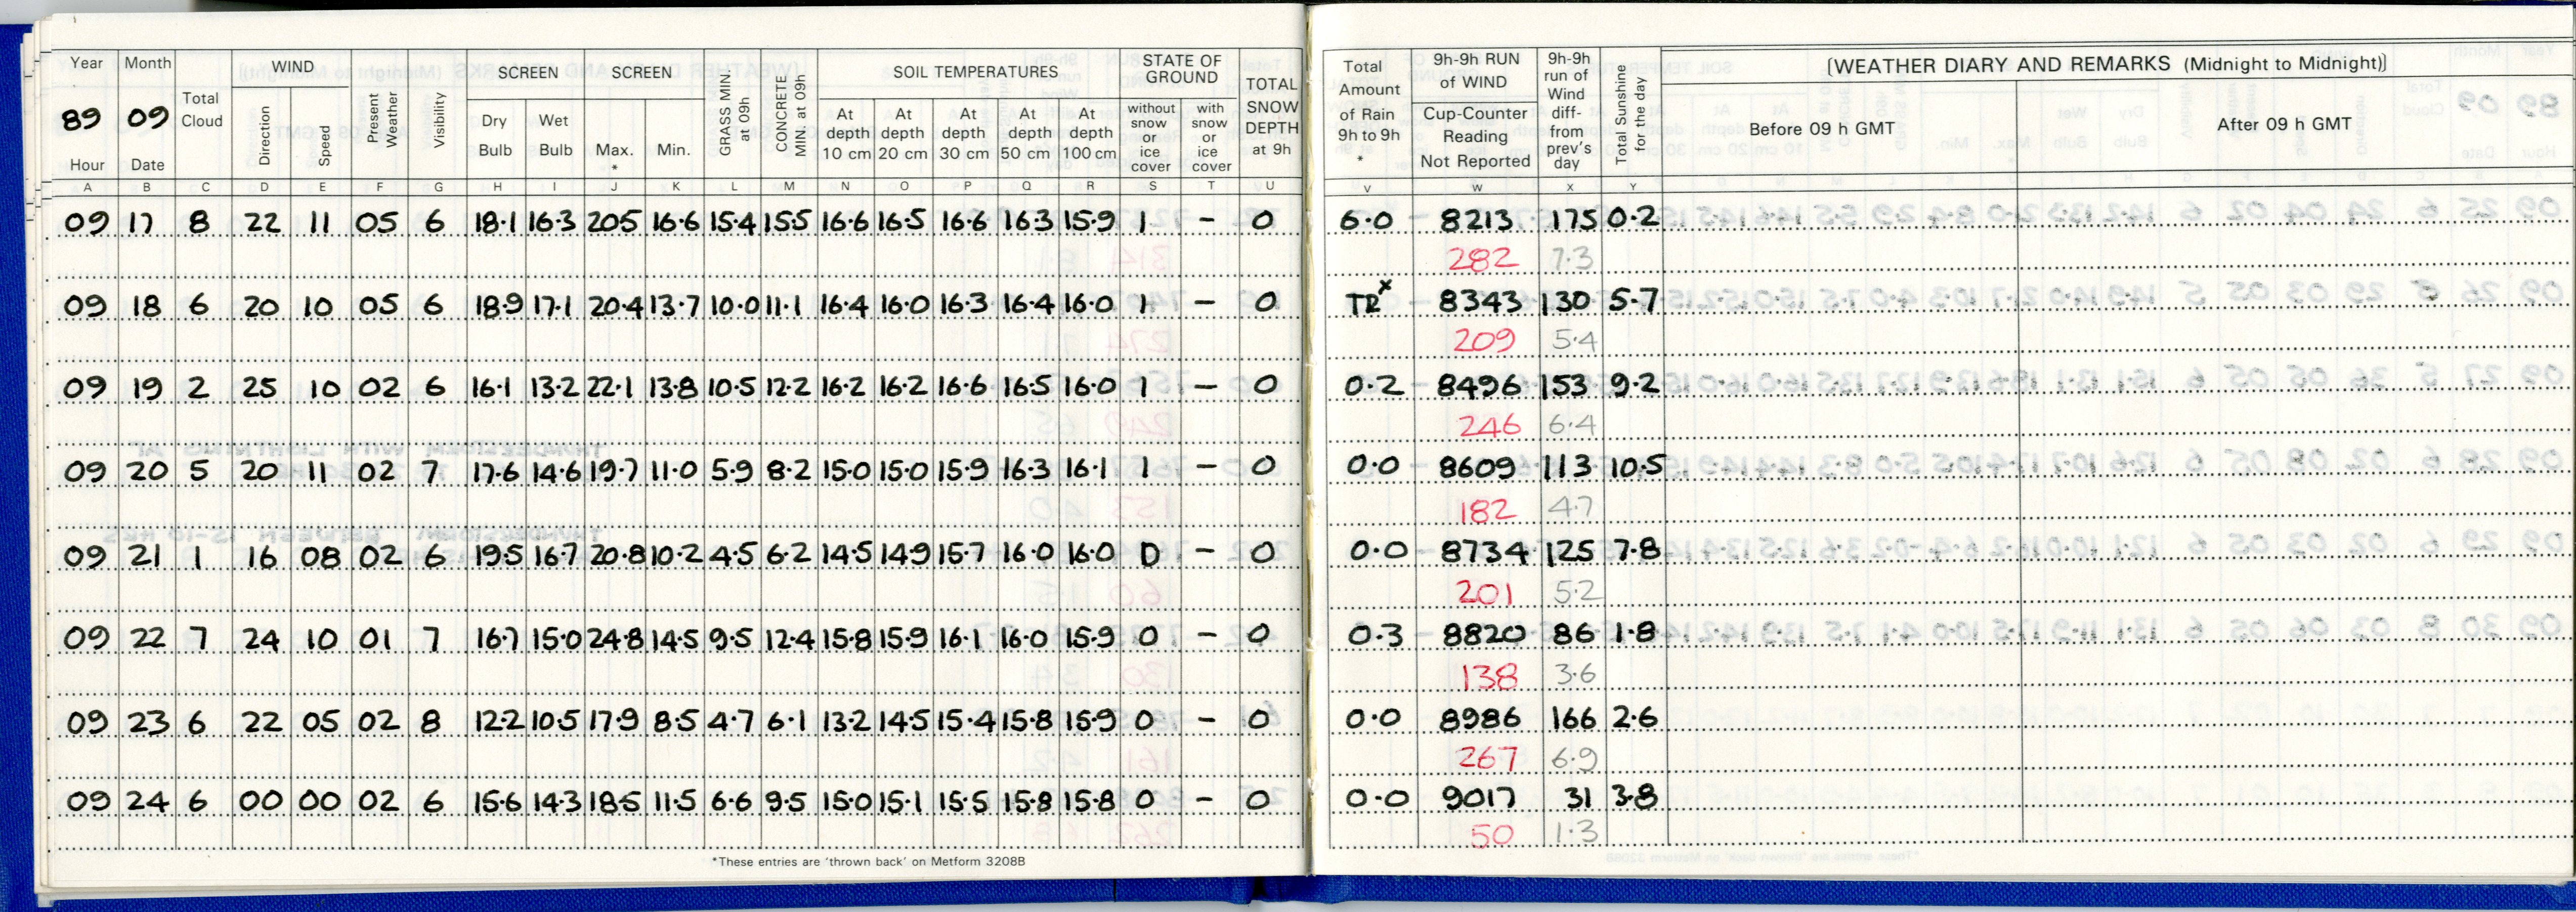 Year Month Total Cloud WIND Present Weather Visibility SCREEN SCREEN GRASS MIN. at 09h CONCRETE MIN. at 09h SOIL TEMPERATURES STATE OF GROUND TOTAL SNOW DEPTH at 9h Total Amount of Rain 9h to 9h * 9h-9h RUN of WIND 9h-9h run of Wind diff- from prev's day Total Sunshine for the day [WEATHER DIARY AND REMARKS (Midnight to Midnight)]
89 09 Direction Speed Dry Bulb Wet Bulb Max. * Min. At depth 10 cm At depth 20 cm At depth 30 cm At depth 50 cm At depth 100 cm without snow or ice cover with snow or ice cover Cup-Counter Reading Not Reported Before 09 h GMT After 09 h GMT
Hour Date
A B C D E F G H I J K L M N O P Q R S T U V W X Y
09 17 8 22 11 05 6 18.1 16.3 20.5 16.6 15.4 15.5 16.6 16.5 16.6 16.3 15.9 1 - 0 6.0 8213 175 0.2
282 7.3
09 18 6 20 10 05 6 18.9 17.1 20.4 13.7 10.0 11.1 16.4 16.0 16.3 16.4 16.0 1 - 0 TR x 8343 130 5.7
209 5.4
09 19 2 25 10 02 6 16.1 13.2 22.1 13.8 10.5 12.2 16.2 16.2 16.6 16.5 16.0 1 - 0 0.2 8496 153 9.2
246 6.4
09 20 5 20 11 02 7 17.6 14.6 19.7 11.0 5.9 8.2 15.0 15.0 15.9 16.3 16.1 1 - 0 0.0 8609 113 10.5
182 4.7
09 21 1 16 08 02 6 19.5 16.7 20.8 10.2 4.5 6.2 14.5 14.9 15.7 16.0 16.0 0 - 0 0.0 8734 125 7.8
201 5.2
09 22 7 24 10 01 7 16.7 15.0 24.8 14.5 9.5 12.4 15.8 15.9 16.1 16.0 15.9 0 - 0 0.3 8820 86 1.8
138 3.6
09 23 6 22 05 02 8 12.2 10.5 17.9 8.5 4.7 6.1 13.2 14.5 15.4 15.8 15.9 0 - 0 0.0 8986 166 2.6
267 6.9
09 24 6 00 00 02 6 15.6 14.3 18.5 11.5 6.6 9.5 15.0 15.1 15.5 15.8 15.8 0 - 0 0.0 9017 31 3.8
50 1.3
*These entries are 'thrown back' on Metform 3208B